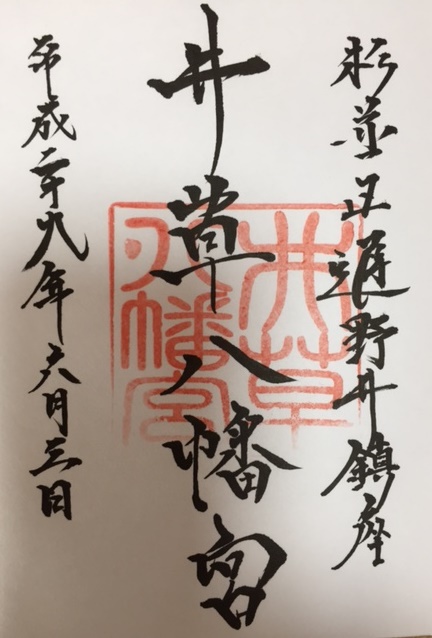 杉並区遅野井鎮座
井草八幡宮
平成二十九年六月三日
井草
八幡宮